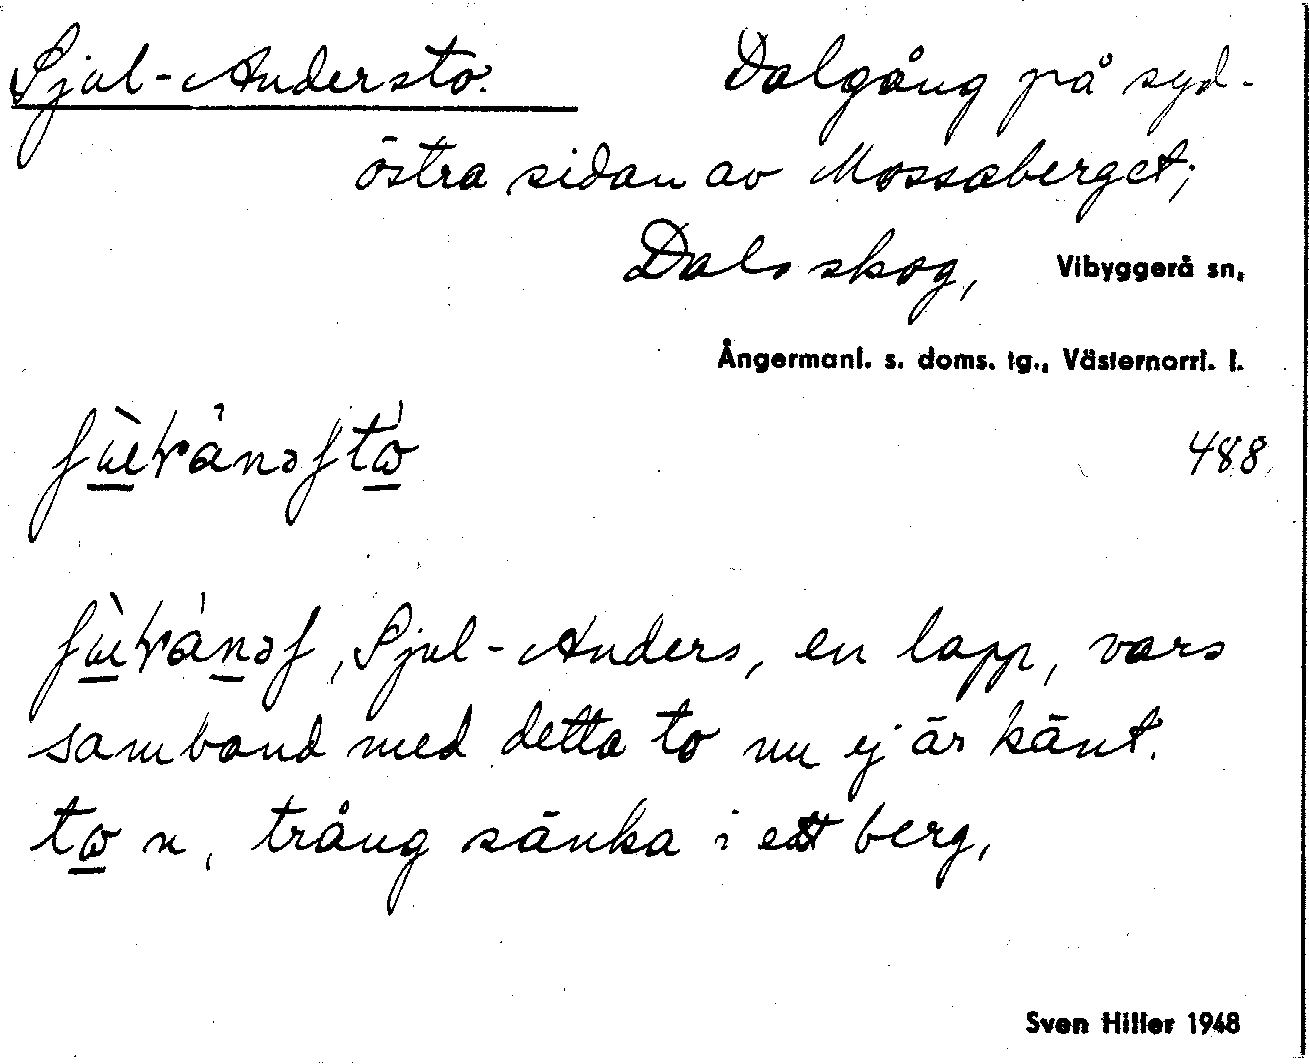 Sjul-Andersto.
Dalgång på syd-
östra sidan av Mossaberget;
Dals skog, Vibyggerå sn,
Ångermanl. s. doms. tg., Västernorrl. l.
488
Sjul-Anders, en lapp, vars
samband med detta to nu ej är känt.
n, trång sänka i ett berg,
Sven Hiller 1948